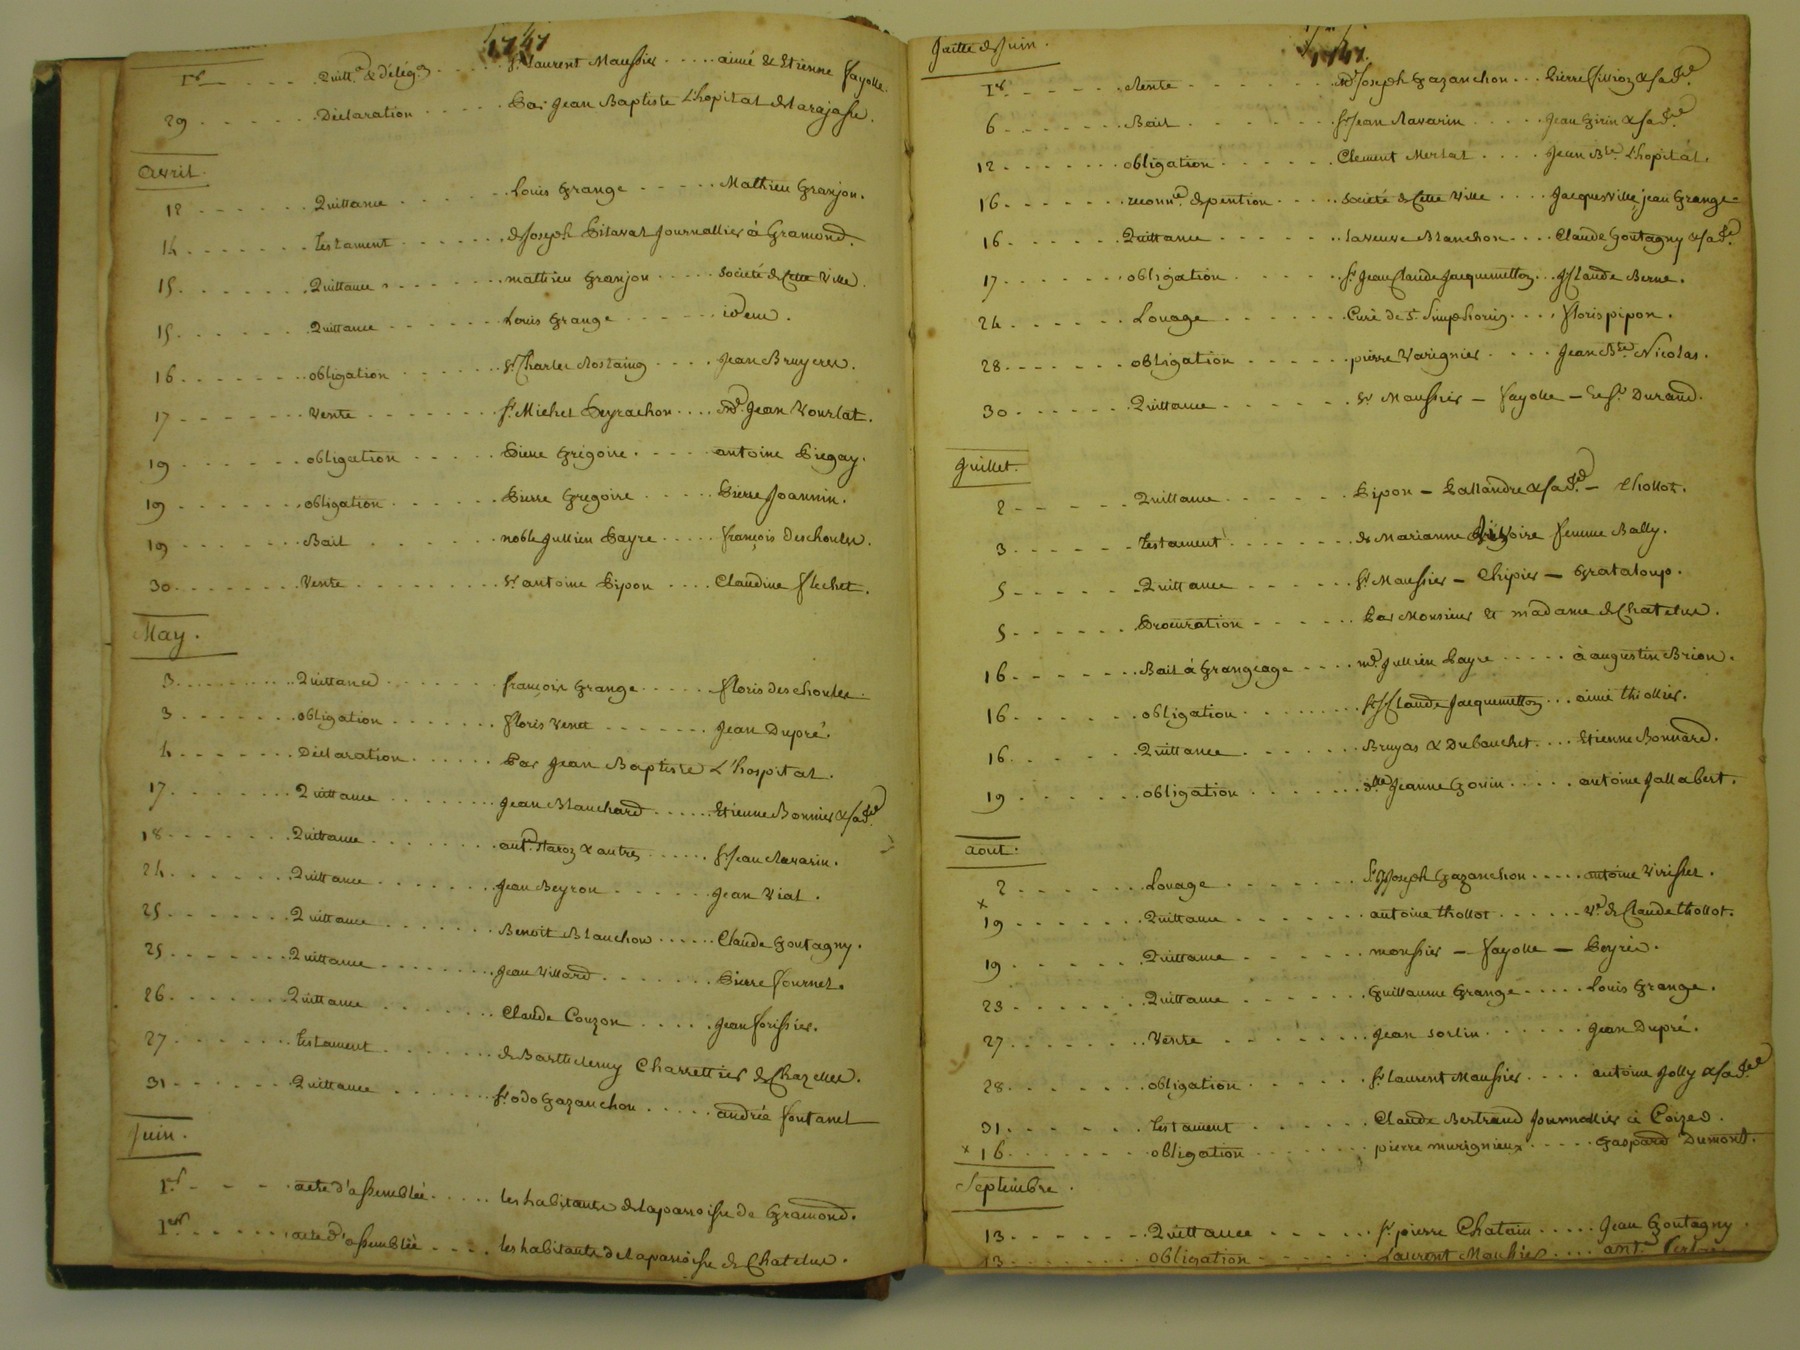 1747
1er Quitt.e & délég.on Sr Laurent Maussier aimé & Etienne Fayolle.
29 Déclaration Par Jean Baptiste Lhopital de Larajasse.
Avril.
12 Quittance Louis Grange Mathieu Granjon.
14 Testament de Joseph Pitaval Journallier à Gramond.
15 Quittance mathieu Granjon Societé de Cette Ville.
15 Quittance Louis Grange idem.
16 obligation Sr Charles Rostaing Jean Bruyeres.
17 Vente Sr Michel Peyrachon md Jean Vourlat.
19 obligation Pierre Grégoire antoine Piegay.
19 obligation Pierre Gregoire Pierre Joannin.
19 Bail noble Jullien Payre françois Deschoulx.
30 Vente Sr antoine Pipon Claudine Flechet.
May.
3 Quittance françois Grange floris Deschoulx.
3 obligation floris Venet Jean Dupré.
4 Déclaration Par Jean Baptiste L'hospital.
17 Quittance Jean Blanchard Etienne Bonnier & sa fe
18 Quittance ant. & autres Sr Jean Ravarin.
24 Quittance Jean Beyron Jean Vial.
25 Quittance Benoit Blanchon Claude Goutagny.
25 Quittance Jean Villard Pierre Fournel.
26 Quittance Claude Couzon Jean Forissier.
27 Testament de Barthelemy Charrettier de Chazelles.
31 Quittance Sr odo Gazanchon andrée fontanel
Juin.
1er acte d'assemblée les habitants de la parroisse de Gramond.
1er acte d'assemblée les habitants de la parroisse de Chatelus.
1747.
Suitte de Juin.
1er Vente md Joseph Gazanchon Pierre Villioz & sa fe
6 Bail Sr Jean Ravarin Jean Girin & sa fe
12 obligation Clement Merlat Jean Bte Lhopital.
16 reconn.ce de pention societé de Cette Ville Jacques Ville, jean Grange
16 Quittance la veuve Blanchon Claude Goutagny & sa fe
17 obligation Sr Jean Claude Jacquemetton J Claude Berne.
24 Louage Curé de St Simphorien floris pipon.
28 obligation pierre Varignier Jean Bte Nicolas.
30 Quittance Sr Maussier - Fayolle - Durand.
Juillet.
2 Quittance Pipon - Pallandre & sa fe - thollot.
3 Testament de Marianne femme Bally.
5 Quittance Sr Maussier - Chipier - Grataloup.
5 Procuration Par Monsieur & madame de Chatelus.
16 Bail à Grangeage md Jullien Payre à augustin Brion.
16 obligation Sr J Claude Jacquemetton aimé thiollier.
16 Quittance Bruyas & Dubanchet Etienne Bonnard.
19 obligation dlle Jeanne Gonin antoine Jallabert.
aout.
2 Louage Sr Joseph Gazanchon antoine Virissel.
x
19 Quittance antoine thollot Ve de Claude thollot.
19 Quittance monssier - Fayolle - Peyrée.
23 Quittance Guillaume Grange Louis Grange.
27 Vente Jean sorlin Jean Dupré.
28 obligation Sr Laurent Maussier antoine Jolly & sa fe
31 Testament Claude Bertrand Journallier à Coize.
x 16 obligation pierre murignieux Gaspard Dumont.
Septembre.
13 Quittance Sr pierre Chatain Jean Goutagny.
13 obligation Laurent Maussier ant.